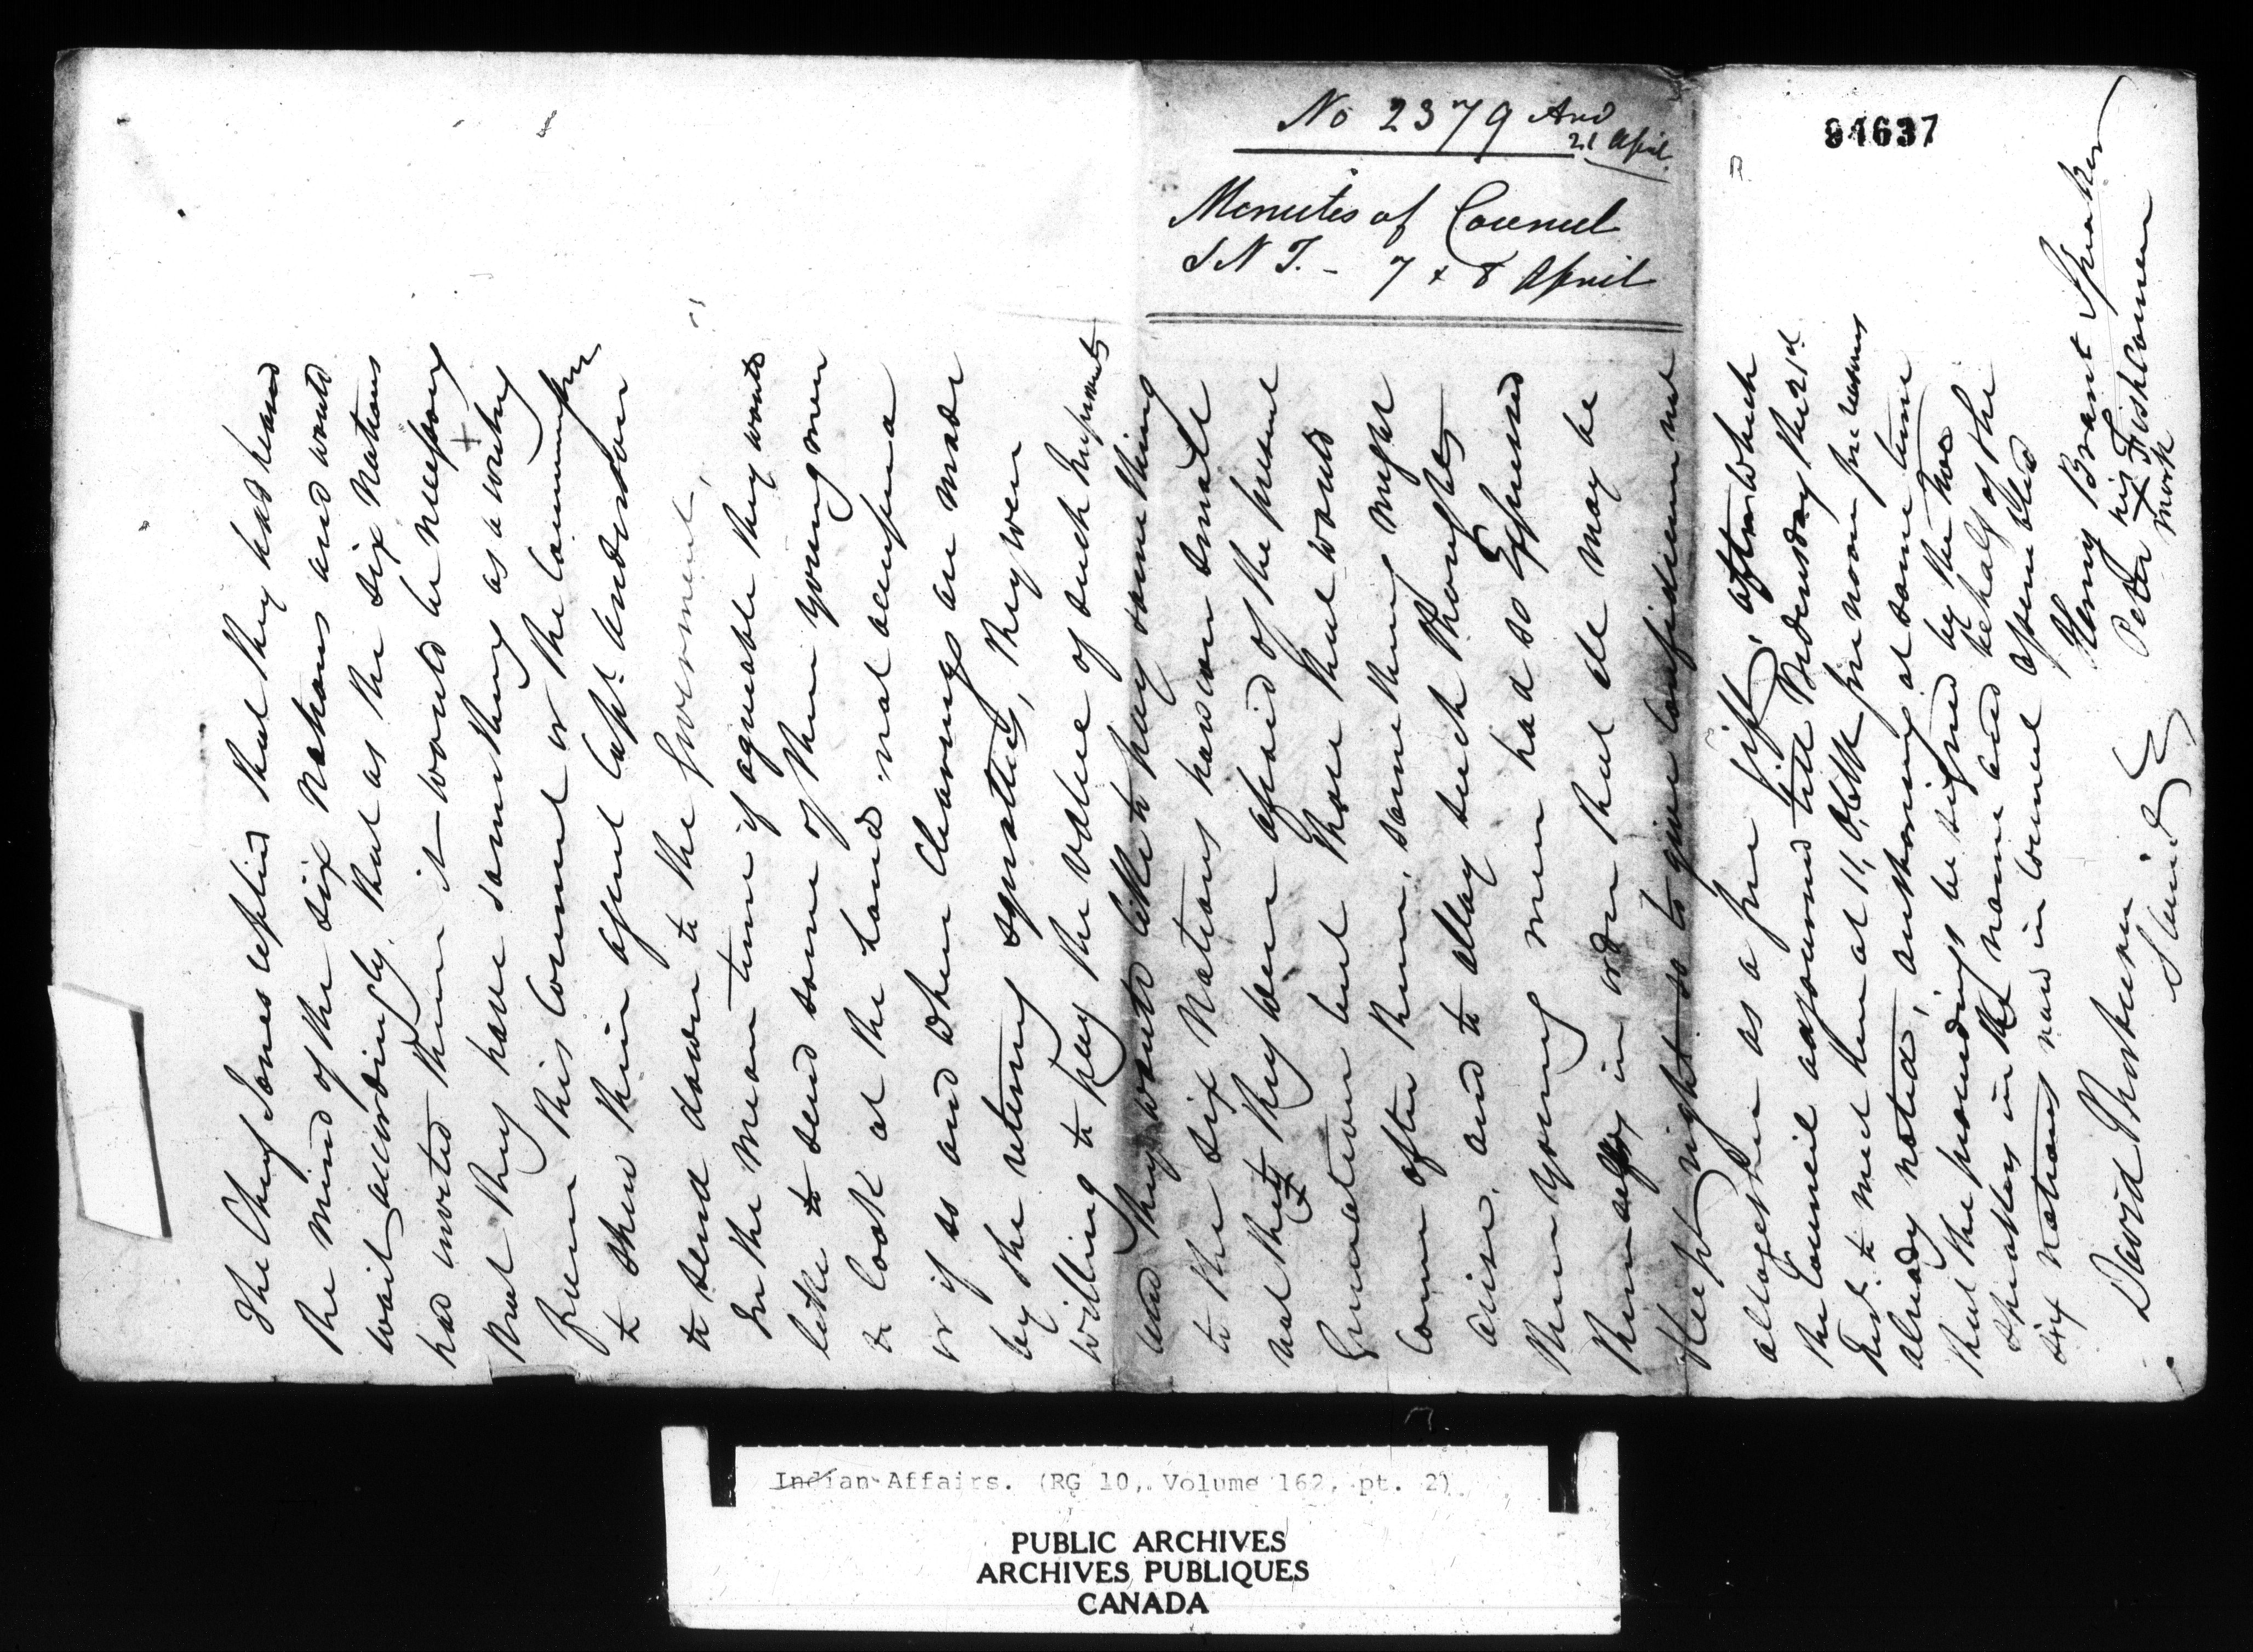 No 2379 And
21 April
Minutes of Council
S N I. - 7 & 8 April
94637
The Chief Jones replied that they had heard
the mind of the Six Nations and would
wait accordingly, that as the Six Nations
had invited them it would be necessary
that they have something as a writing
from this Council or the Commissioner
to shew their agent Capt Anderson
to send down to the Government,
In the mean time if agreeable they would
like to send some of their young men
to look at the land not occupied
or if so and when clearings are made
by the retiring squatters, they were
willing to pay the value of such Improvmts
and they would like to pay something
to the Six Nations however small
not that they were afraid of the present
Generation but those that would
come after them, something might
arise, and to allay such thoughts
their young men had so Expressed
themselves in order that all may be
kept right so to give confidence not
altogether as a free gift, after which
the Council adjourned till Wednesday the 21st
Inst. to meet here at 11, O,Clk forenoon for reasons
already noted, authorising at same time
that the proceedings be signed by the two
Speakers in the name and behalf of the
Six Nations now in Council assembled
Henry Brant Speaker
Peter his x mark Fishcarrier
David Thorburn